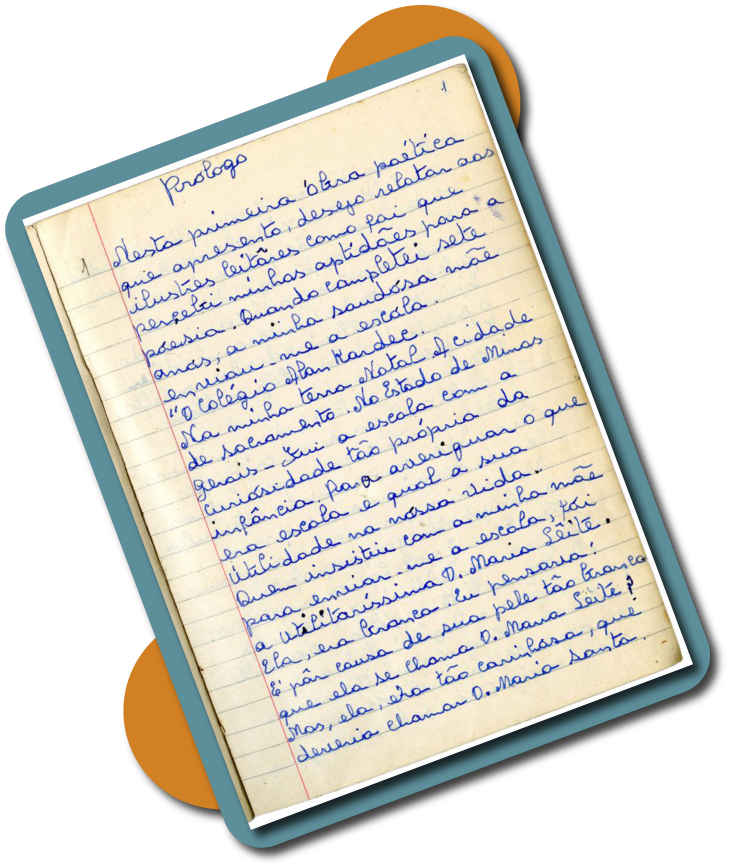 1
Prólogo
1 Nesta primeira óbra poética
que apresento, desejo relatar aos
ilustrês leitôres como foi que
percebi minhas aptidões para a
poesia. Quando completei sete
anos, a minha saudósa mãe
enviou-me a escóla.
"O Colégio Alan Kardec.
Na minha terra Natal A cidade
de sacramento. No Estado de Minas
gerais - Fui a escola com a
curiósidade tão própria da
infância. Para averiguar o que
era escola e qual a sua
útilidade na nossa vida..
Quem insistiu com a minha mãe
para enviar-me a escola, foi
a utilitaríssima D. Maria Lêite.
Ela, era branca. Eu pensava!
É pôr causa de sua pele tão branca
que ela se chama D. Maria Lêite?
Mas, ela, era tão carinhosa, que
deveria chamar D. Maria santa.